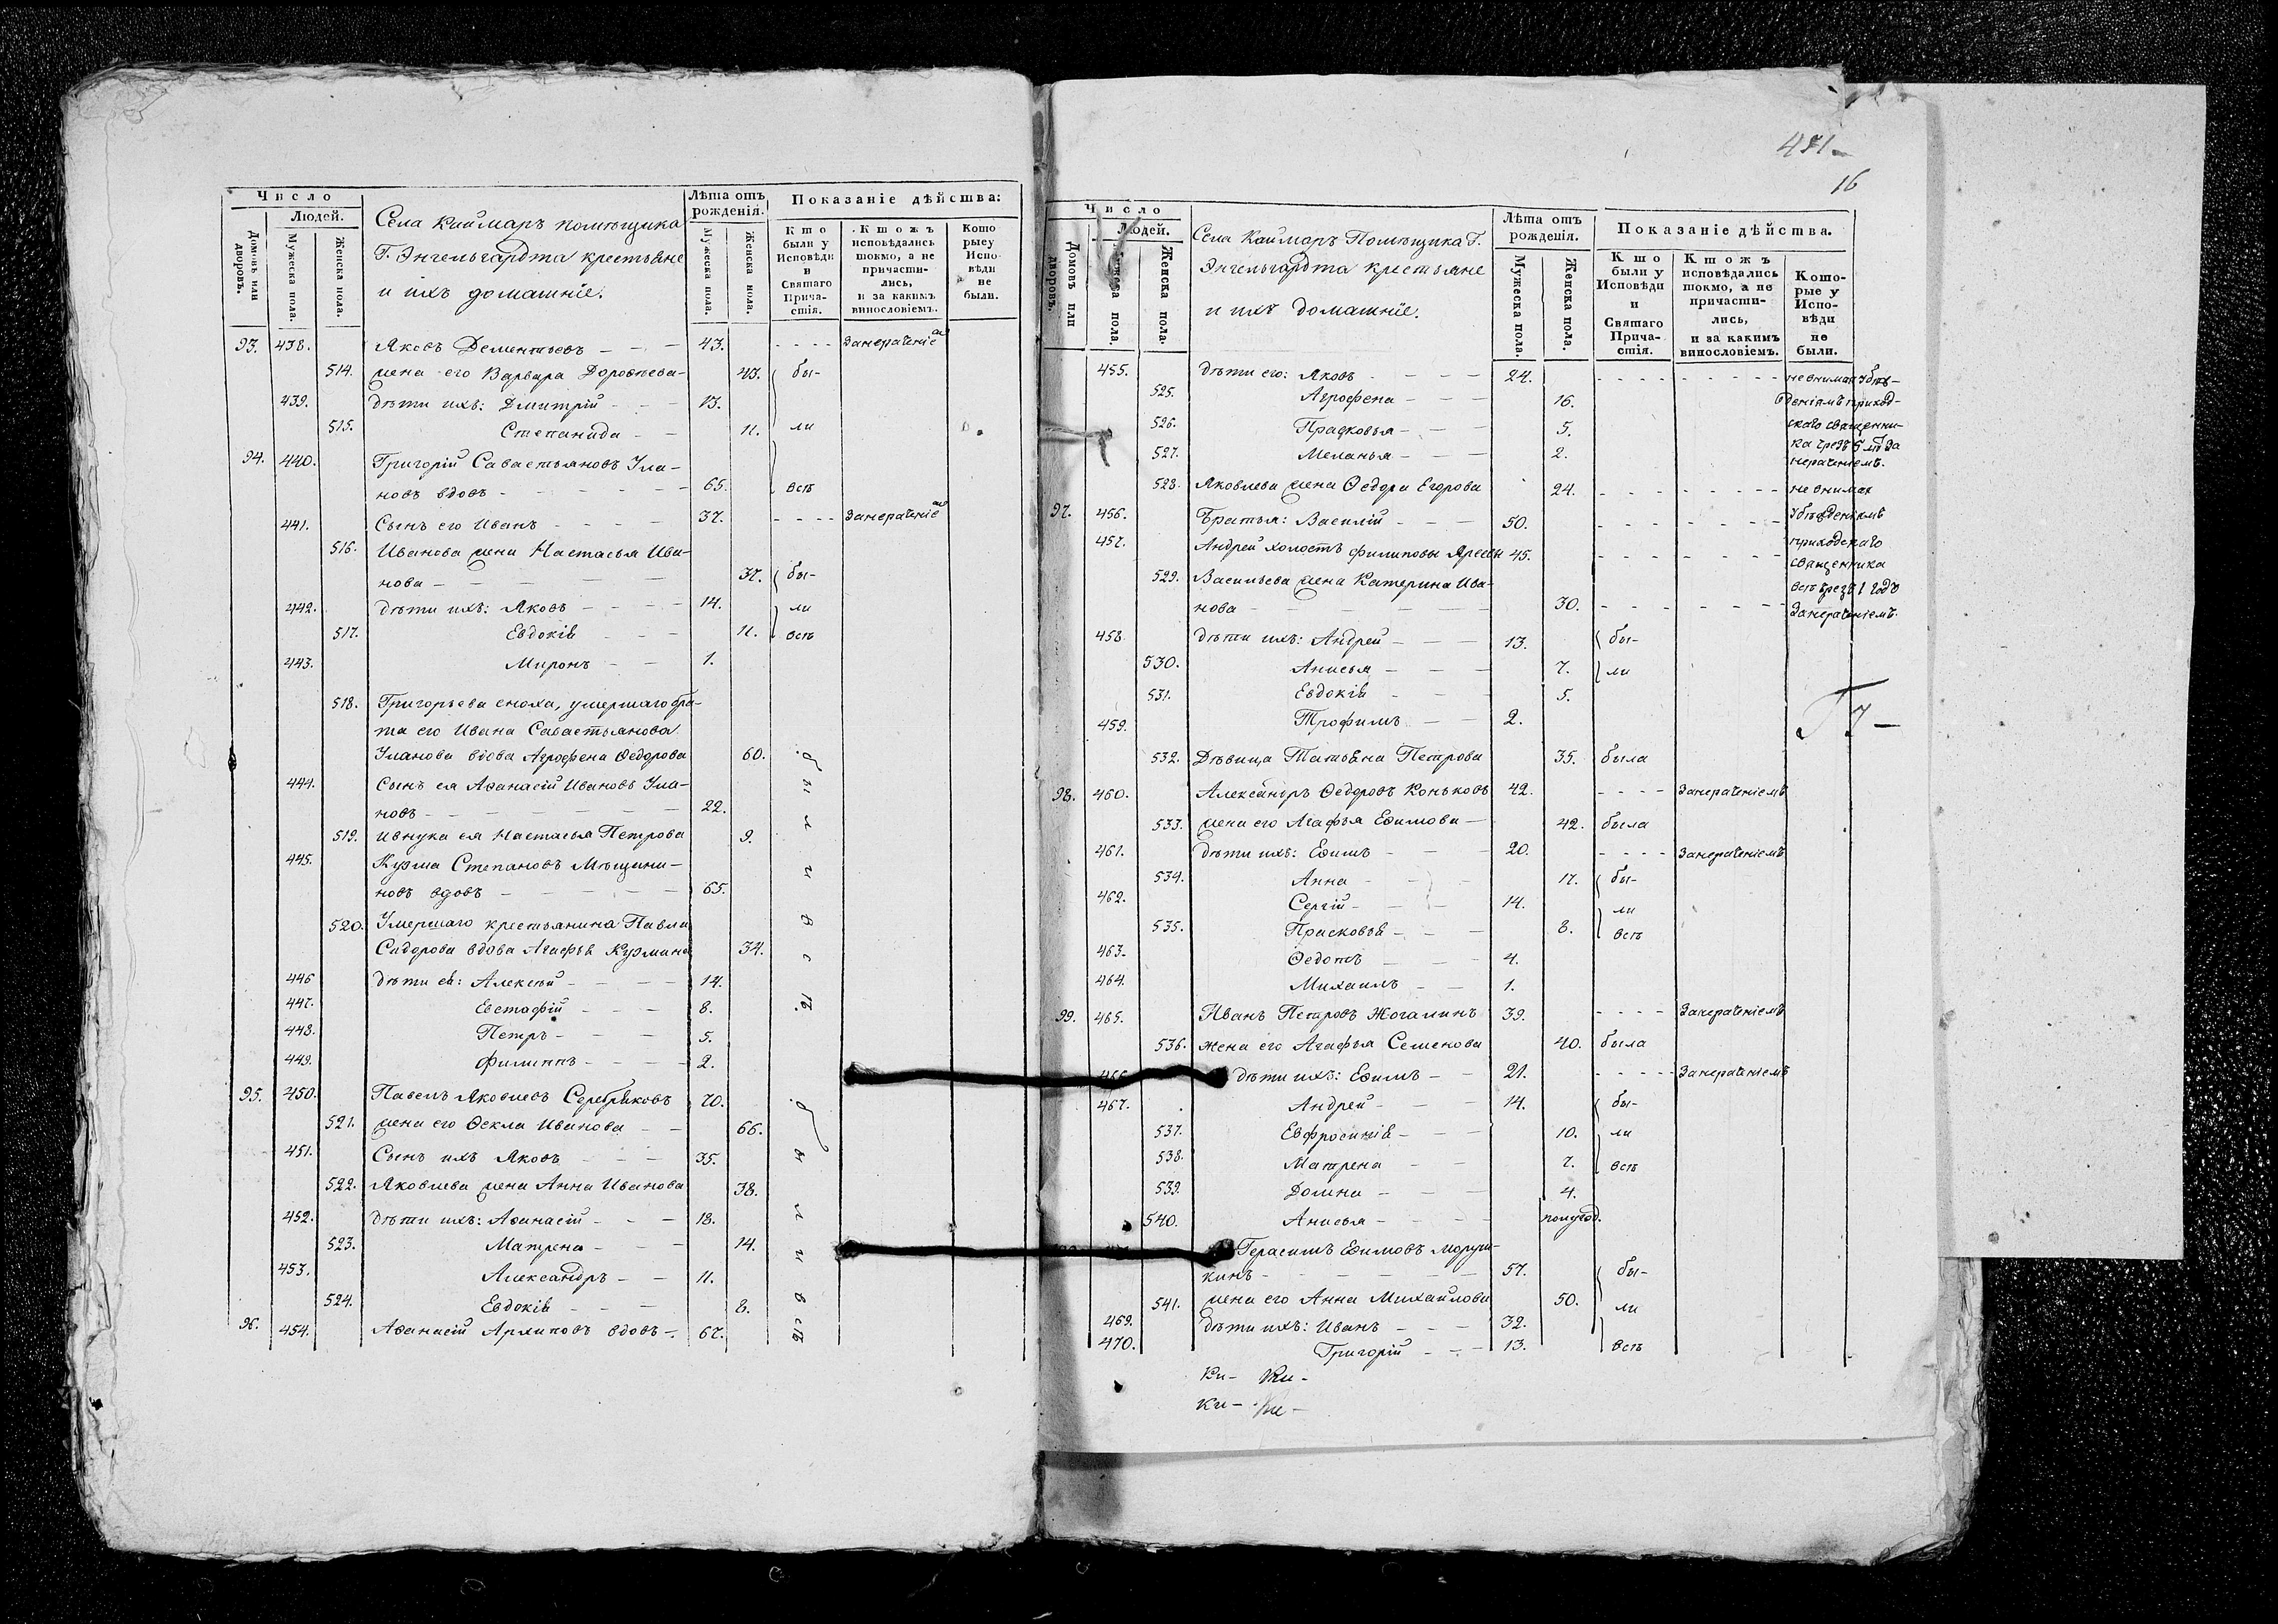 Число
Людей.
Домовъ или дворовъ.
Мужеска пола.
Женска пола.
Села Каймаръ помѣщика
Г. Энгельгардта крестьяне
и ихъ домашніе.
Лѣта отъ рожденія.
Мужеска пола.
Женска пола.
Показаніе дѣйства:
Кто были у Исповѣди и Святаго Причастія.
Ктожъ исповѣдались токмо, а не причастились, и за какимъ винословіемъ.
Которые у Исповѣди не были.
93. 438. Яковъ Дементьевъ — — — 43. - - - -
514. жена его Варвара Дороѳѣева — 43. бы-
439. дѣти ихъ: Дмитрій — — 13.
515. Степанида — — 11. ли
94. 440. Григорій Савастьяновъ Ула-
новъ вдовъ — — — 65. всѣ
441. Сынъ его Иванъ — — — 37. - - - -
516. Иванова жена Настасья Ива-
нова — — — — 37. бы-
442. дѣти ихъ: Яковъ — — — 14. ли
517. Евдокія — — 11. всѣ
443. Миронъ — — 1.
518. Григорьева сноха, умершаго бра-
та его Ивана Савастьянова
Уланова вдова Агрофена Ѳедорова 60. были всѣ.
444. Сынъ ея Аѳанасій Ивановъ Ула-
новъ — — — — 22.
519. Внука ея Настасья Петрова 9.
445. Кузма Степановъ Мѣщани-
новъ вдовъ — — — — 65.
520. Умершаго крестьянина Павла
Сидорова вдова Агафья Кузмина 34.
446 дѣти ея: Алексѣй — — — 14.
447. Евстафій — — — 8.
448. Петръ — — — 5.
449. Филиппъ — — — 2.
95. 450. Павелъ Яковлевъ Серебряковъ 70. были всѣ
521. жена его Ѳекла Иванова — — 66.
451. Сынъ ихъ Яковъ — — — 35.
522. Яковлева жена Анна Иванова 38.
452. дѣти ихъ: Аѳанасій — — — 18.
523. Матрена — — — 14.
453. Александръ — — 11.
524. Евдокія — — — 8.
96. 454. Аѳанасій Архиповъ вдовъ — 67.
471-
16
Число
Людей.
Домовъ или дворовъ.
пола.
Женска пола.
Села Каймаръ Помѣщика Г.
Энгельгардта крестьяне
и ихъ домашніе.
Лѣта отъ рожденія.
Мужеска пола.
Женска пола.
Показаніе дѣйства.
Кто были у Исповѣди и Святаго Причастія.
Ктожъ исповѣдались токмо, а не причастились, и за какимъ винословіемъ.
Которые у Исповѣди не были.
455. дѣти его: Яковъ — — — 24. - - - - - - - - - не внимая убѣ-
525. Агрофена — — — 16. жденіямъ приход-
526. Прасковья — — — 5. скаго священни-
527. Меланья — — — 2. ка чрезъ
528. Яковлева жена Ѳедора Егорова 24. - - - - - - - - - не внимая
97. 456. Братья: Василій — — — 50. - - - - - - - - убѣжденіямъ
457. Андрей холостъ Филиповы 45. - - - - - - - - приходскаго
священника
529. Васильева жена Катерина Ива-
нова — — — — — 30. - - - - - - - всѣ чрезъ 1 годъ
занераченіемъ.
458. дѣти ихъ: Андрей — — — 13. бы-
530. Анисья — — — 7. ли
531. Евдокія — — — 5.
459. Трофимъ — — 2.
532. Дѣвица Татьяна Петрова 35. была
98. 460. Александръ Ѳедоровъ Коньковъ 42. - - - - Занераченіемъ
533. жена его Агафья Ефимова — 42. была
461. дѣти ихъ: Ефимъ — — — 20. - - - - Занераченіемъ
534. Анна — — — 17. бы-
462. Сергій — — — 14. ли
535. Прасковья — — — 8. всѣ
463. Ѳедотъ — — — 4.
464. Михаилъ — — 1.
99. 465. Иванъ Петровъ Жогалинъ 39. - - - - Занераченіемъ
536. жена его Агафья Семенова 40. была
466. дѣти ихъ: Ефимъ — — 21. - - - - - Занераченіемъ
467. Андрей — — — 14. бы-
537. Евфросинія — — — 10. ли
538. Матрена — — 7. всѣ
539. Домна — — — 4.
540. Анисья — — — полугод.
Герасимъ Ефимовъ
кинъ — — — — — 57. бы-
541. жена его Анна Михайлова 50. ли
469. дѣти ихъ: Иванъ — — — 32.
470. Григорій — — — 13. всѣ